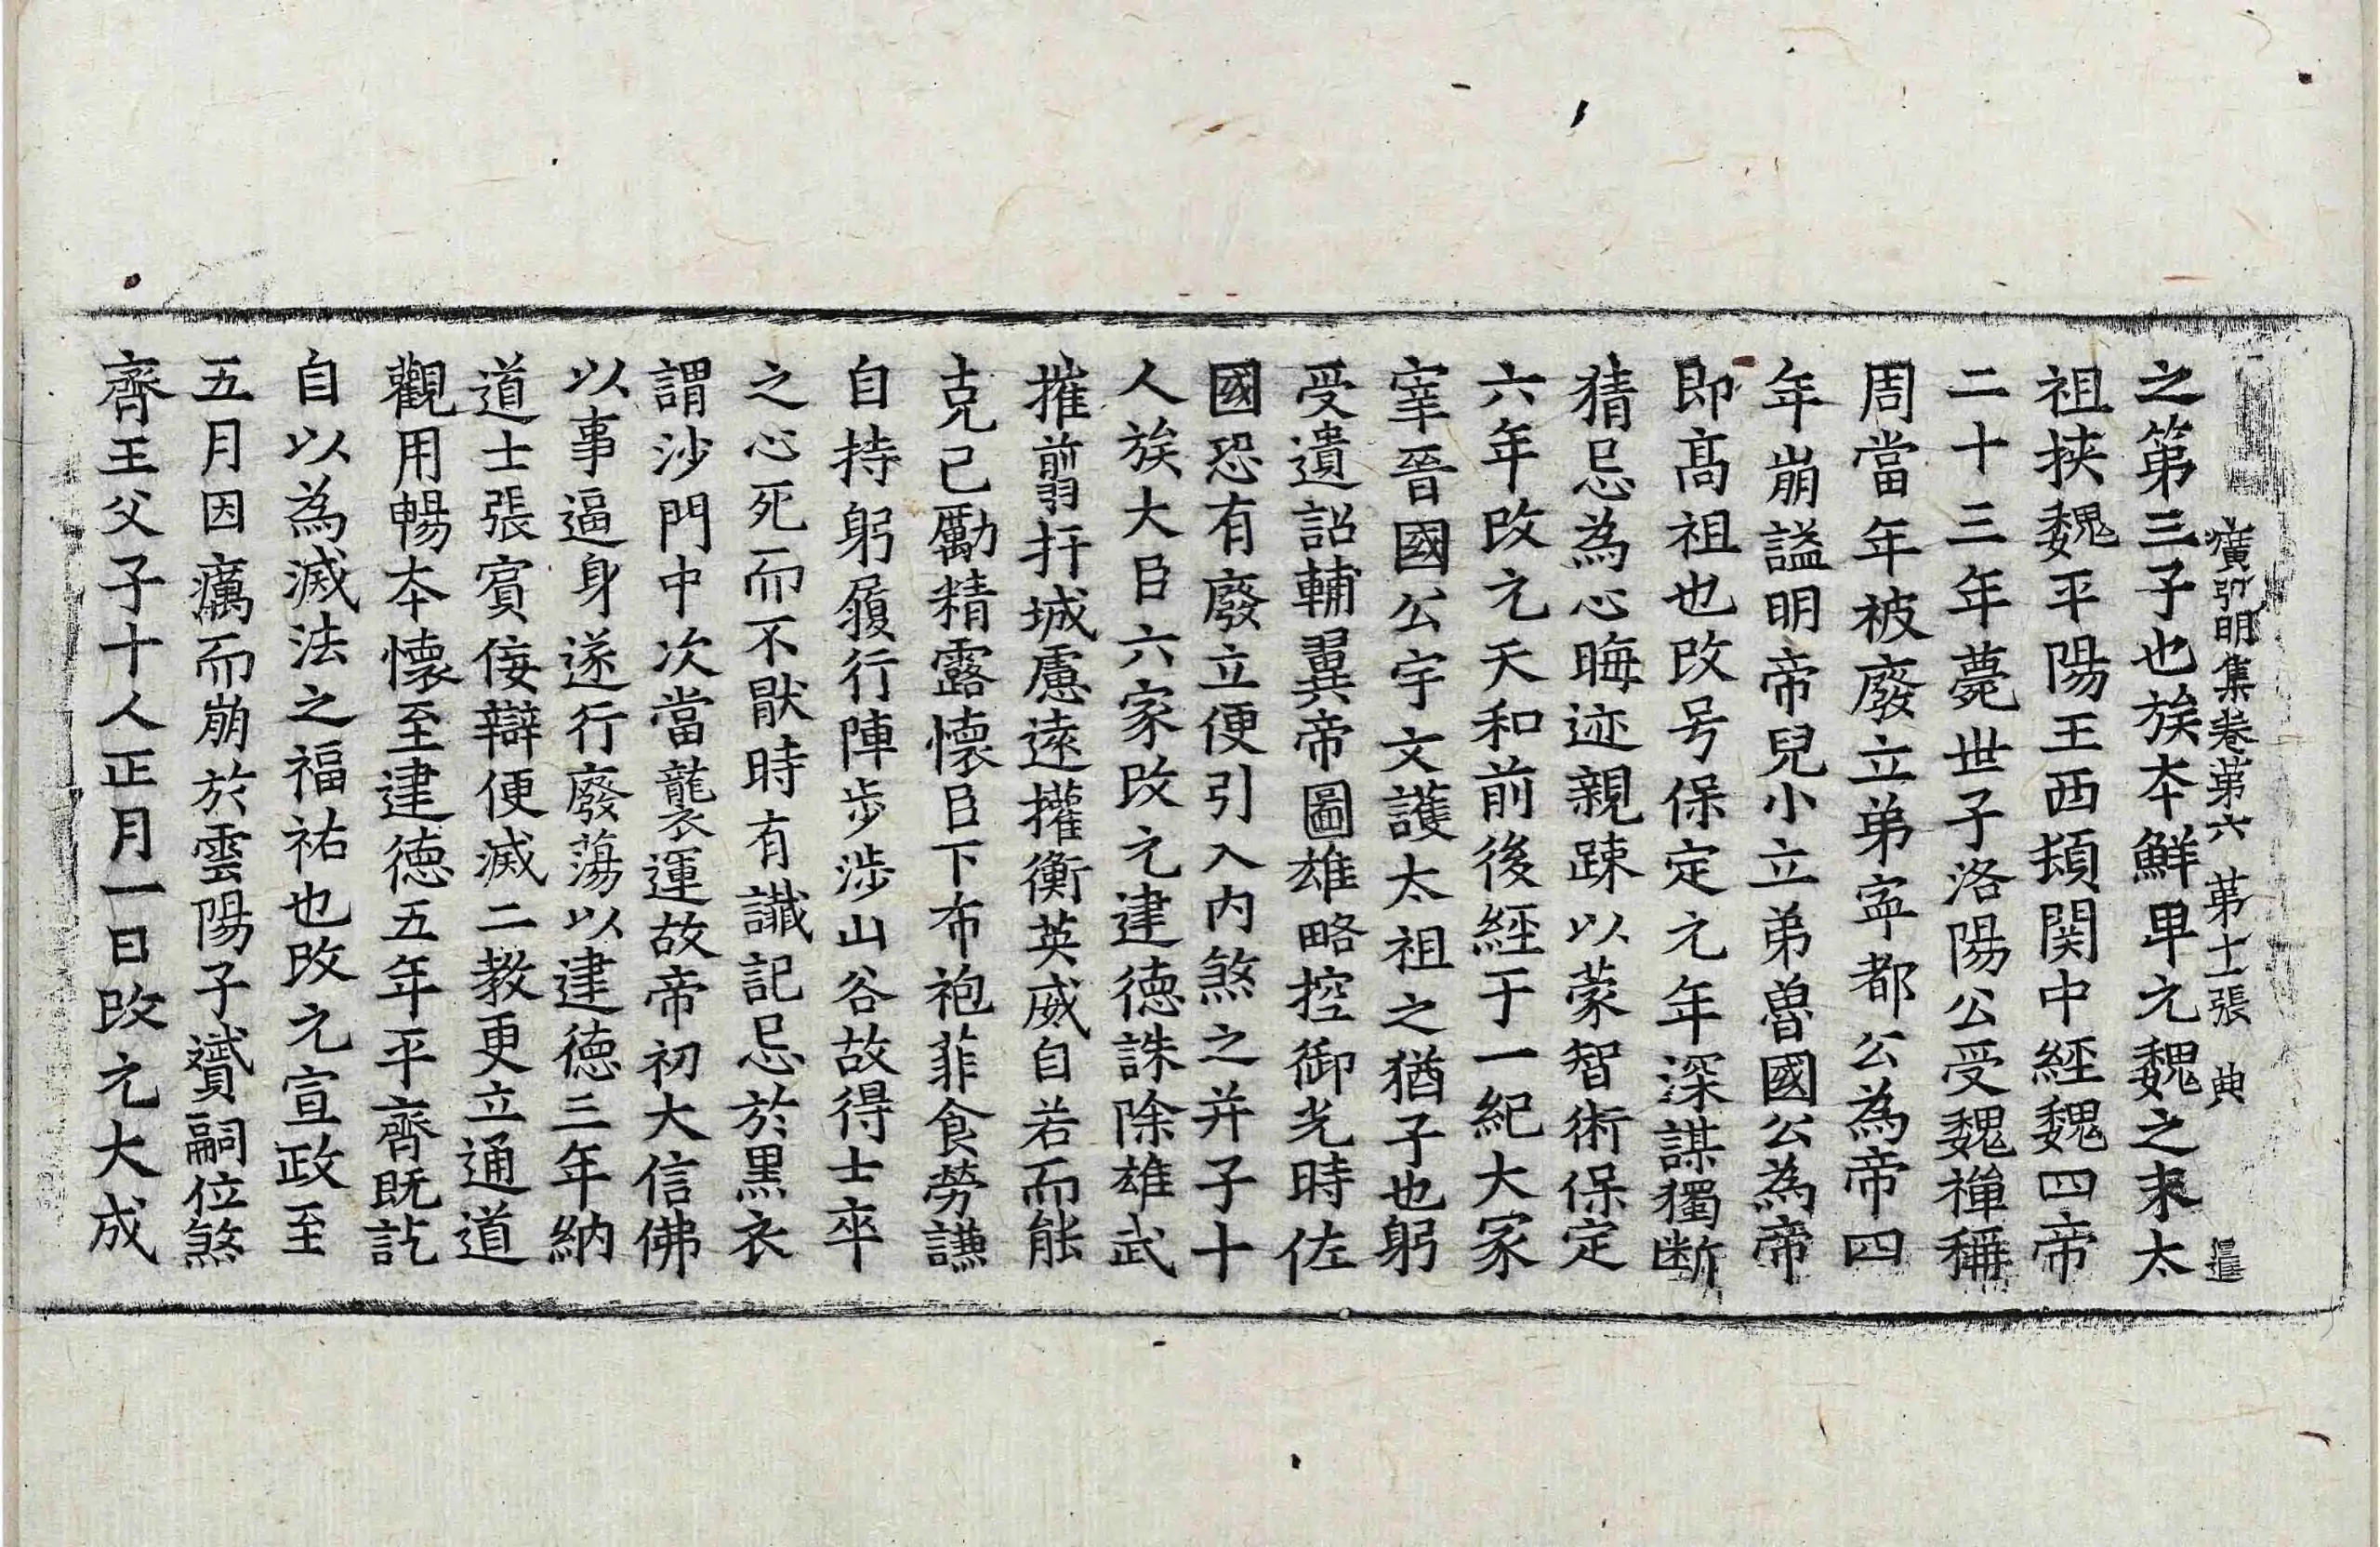 廣弘明集卷第六 第十二張 典 暹
之第三子也族本鮮卑元魏之末太
祖挾魏平陽王西頓関中經魏四帝
二十三年薨世子洛陽公受魏禅稱
周當年被廢立弟寧都公為帝四
年崩謚明帝兒小立弟魯國公為帝
即髙祖也改号保定元年深謀獨断
猜忌為心晦迹親踈以蒙智術保定
六年改元天和前後經于一紀大冢
宰晉國公宇文護太祖之猶子也躬
受遺詔輔翼帝圖雄略控御光時佐
國恐有廢立便引入内煞之并子十
人族大臣六家改元建德誅除雄武
摧翦扞城慮遠攉衡英威自若而能
克己勵精露懷臣下布袍菲食勞謙
自持躬履行陣步涉山谷故得士卒
之心死而不猒時有讖記忌於黒衣
謂沙門中次當襲運故帝初大信佛
以事逼身遂行廢蕩以建德三年納
道士張賓佞辯便滅二教更立通道
觀用暢本懷至建德五年平齊既訖
自以為滅法之福祐也改元宣政至
五月因癘而崩於雲陽子贇嗣位煞
齊王父子十人正月一日改元大成